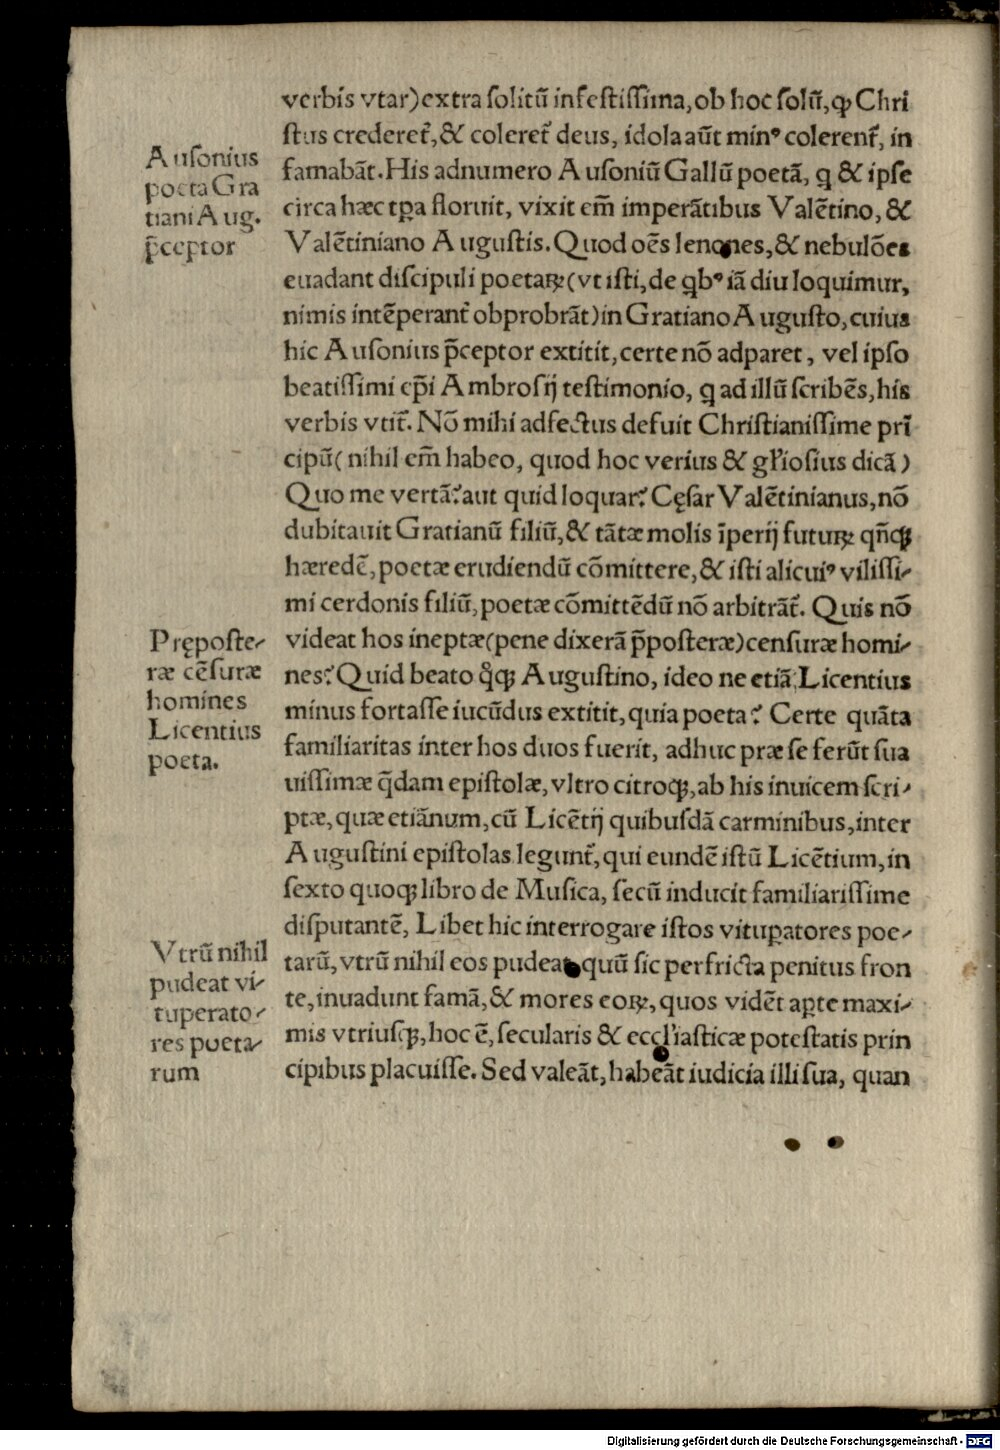 verbis vtar)extra ſolitū infeſtiſſima, ob hoc ſolū, ꝙ Chri
ſtus crederet᷑, & coleret᷑ deus, idola aūt minꝰ colerent᷑, in
famabāt. His adnumero Auſoniū Gallū poetā, q & ipſe
circa hæc tꝑa floruit, vixit em̄ imperātibus Valētino, &
Valētiniano Auguſtis. Quod oēs lenones, & nebulōes
euadant diſcipuli poetaꝝ(vt iſti, de qbꝰ iā diu loquimur,
nimis intēperant᷑ obprobrāt)in Gratiano Auguſto, cuius
hic Auſonius p̄ceptor extitit, certe nō adparet, vel ipſo
beatiſſimi ep̄i Ambroſij teſtimonio, q ad illū ſcribēs, his
verbis vtit᷑. Nō mihi adfectus defuit Chriſtianiſſime prī
cipū( nihil em̄ habeo, quod hoc verius & gl'ioſius dicā)
Quo me vertā? aut quid loquar? Cęſar Valētinianus, nō
dubitauit Gratianū filiū, & tātæ molis īperij futuꝝ qn̄cꝗ
hæredē, poetæ erudiendū cōmittere, & iſti alicuiꝰ viliſſi-
mi cerdonis filiū, poetæ cōmittēdū nō arbitrāt᷑. Quis nō
videat hos ineptæ(pene dixerā p̄poſteræ)cenſuræ homi-
nes? Quid beato q̊ꝗ Auguſtino, ideo ne etiā Licentius
minus fortaſſe iucūdus extitit, quia poeta? Certe quāta
familiaritas inter hos duos fuerit, adhuc præ ſe ferūt ſua
uiſſimæ q̄dam epiſtolæ, vltro citroꝗ, ab his inuicem ſcri-
ptæ, quæ etiānum, cū Licētij quibuſdā carminibus, inter
Auguſtini epiſtolas legunt᷑, qui eundē iſtū Licētium, in
ſexto quoꝗ libro de Muſica, ſecū inducit familiariſſime
diſputantē, Libet hic interrogare iſtos vituꝑatores poe-
tarū, vtrū nihil eos pudeat, quū ſic perfricta penitus fron
te, inuadunt famā, & mores eoꝝ, quos vidēt aꝑte maxi-
mis vtriuſꝗ, hoc ē, ſecularis & eccl'iaſticæ poteſtatis prin
cipibus placuiſſe. Sed valeāt, habeāt iudicia illi ſua, quan
Auſonius
poeta Gra
tiani Aug.
p̄ceptor
Prępoſte-
ræ cēſuræ
homines
Licentius
poeta.
Vtrū nihil
pudeat vi-
tuperato-
res poeta-
rum
Digitalisierung gefördert durch die Deutsche Forschungsgemeinschaft - DFG